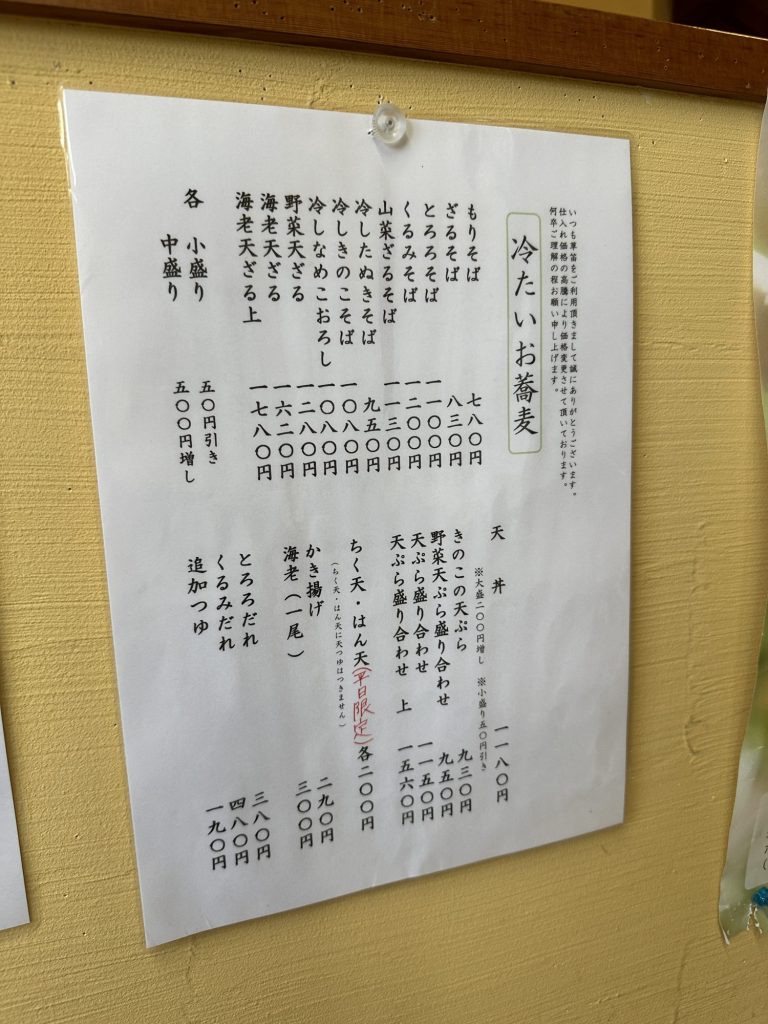 いつも草笛をご利用頂きまして誠にありがとうございます。
仕入れ価格の高騰により価格変更させて頂いております。
何卒ご理解の程お願い申し上げます。
冷たいお蕎麦
もりそば 七八〇円
ざるそば 八三〇円
とろろそば 一一〇〇円
くるみそば 一二〇〇円
山菜ざるそば 一一三〇円
冷したぬきそば 九五〇円
冷しきのこそば 一〇八〇円
冷しなめこおろし 一〇八〇円
野菜天ざる 一二八〇円
海老天ざる 一六二〇円
海老天ざる上 一七八〇円
各 小盛り 五〇円引き
中盛り 五〇〇円増し
天丼 一一八〇円
※大盛二〇〇円増し ※小盛り五〇円引き
きのこの天ぷら 九三〇円
野菜天ぷら盛り合わせ 九五〇円
天ぷら盛り合わせ 一一五〇円
天ぷら盛り合わせ 上 一五六〇円
ちく天・はん天(平日限定)各二〇〇円
(ちく天・はん天に天つゆはつきません)
かき揚げ 二九〇円
海老(一尾) 三〇〇円
とろろだれ 三八〇円
くるみだれ 四八〇円
追加つゆ 一九〇円